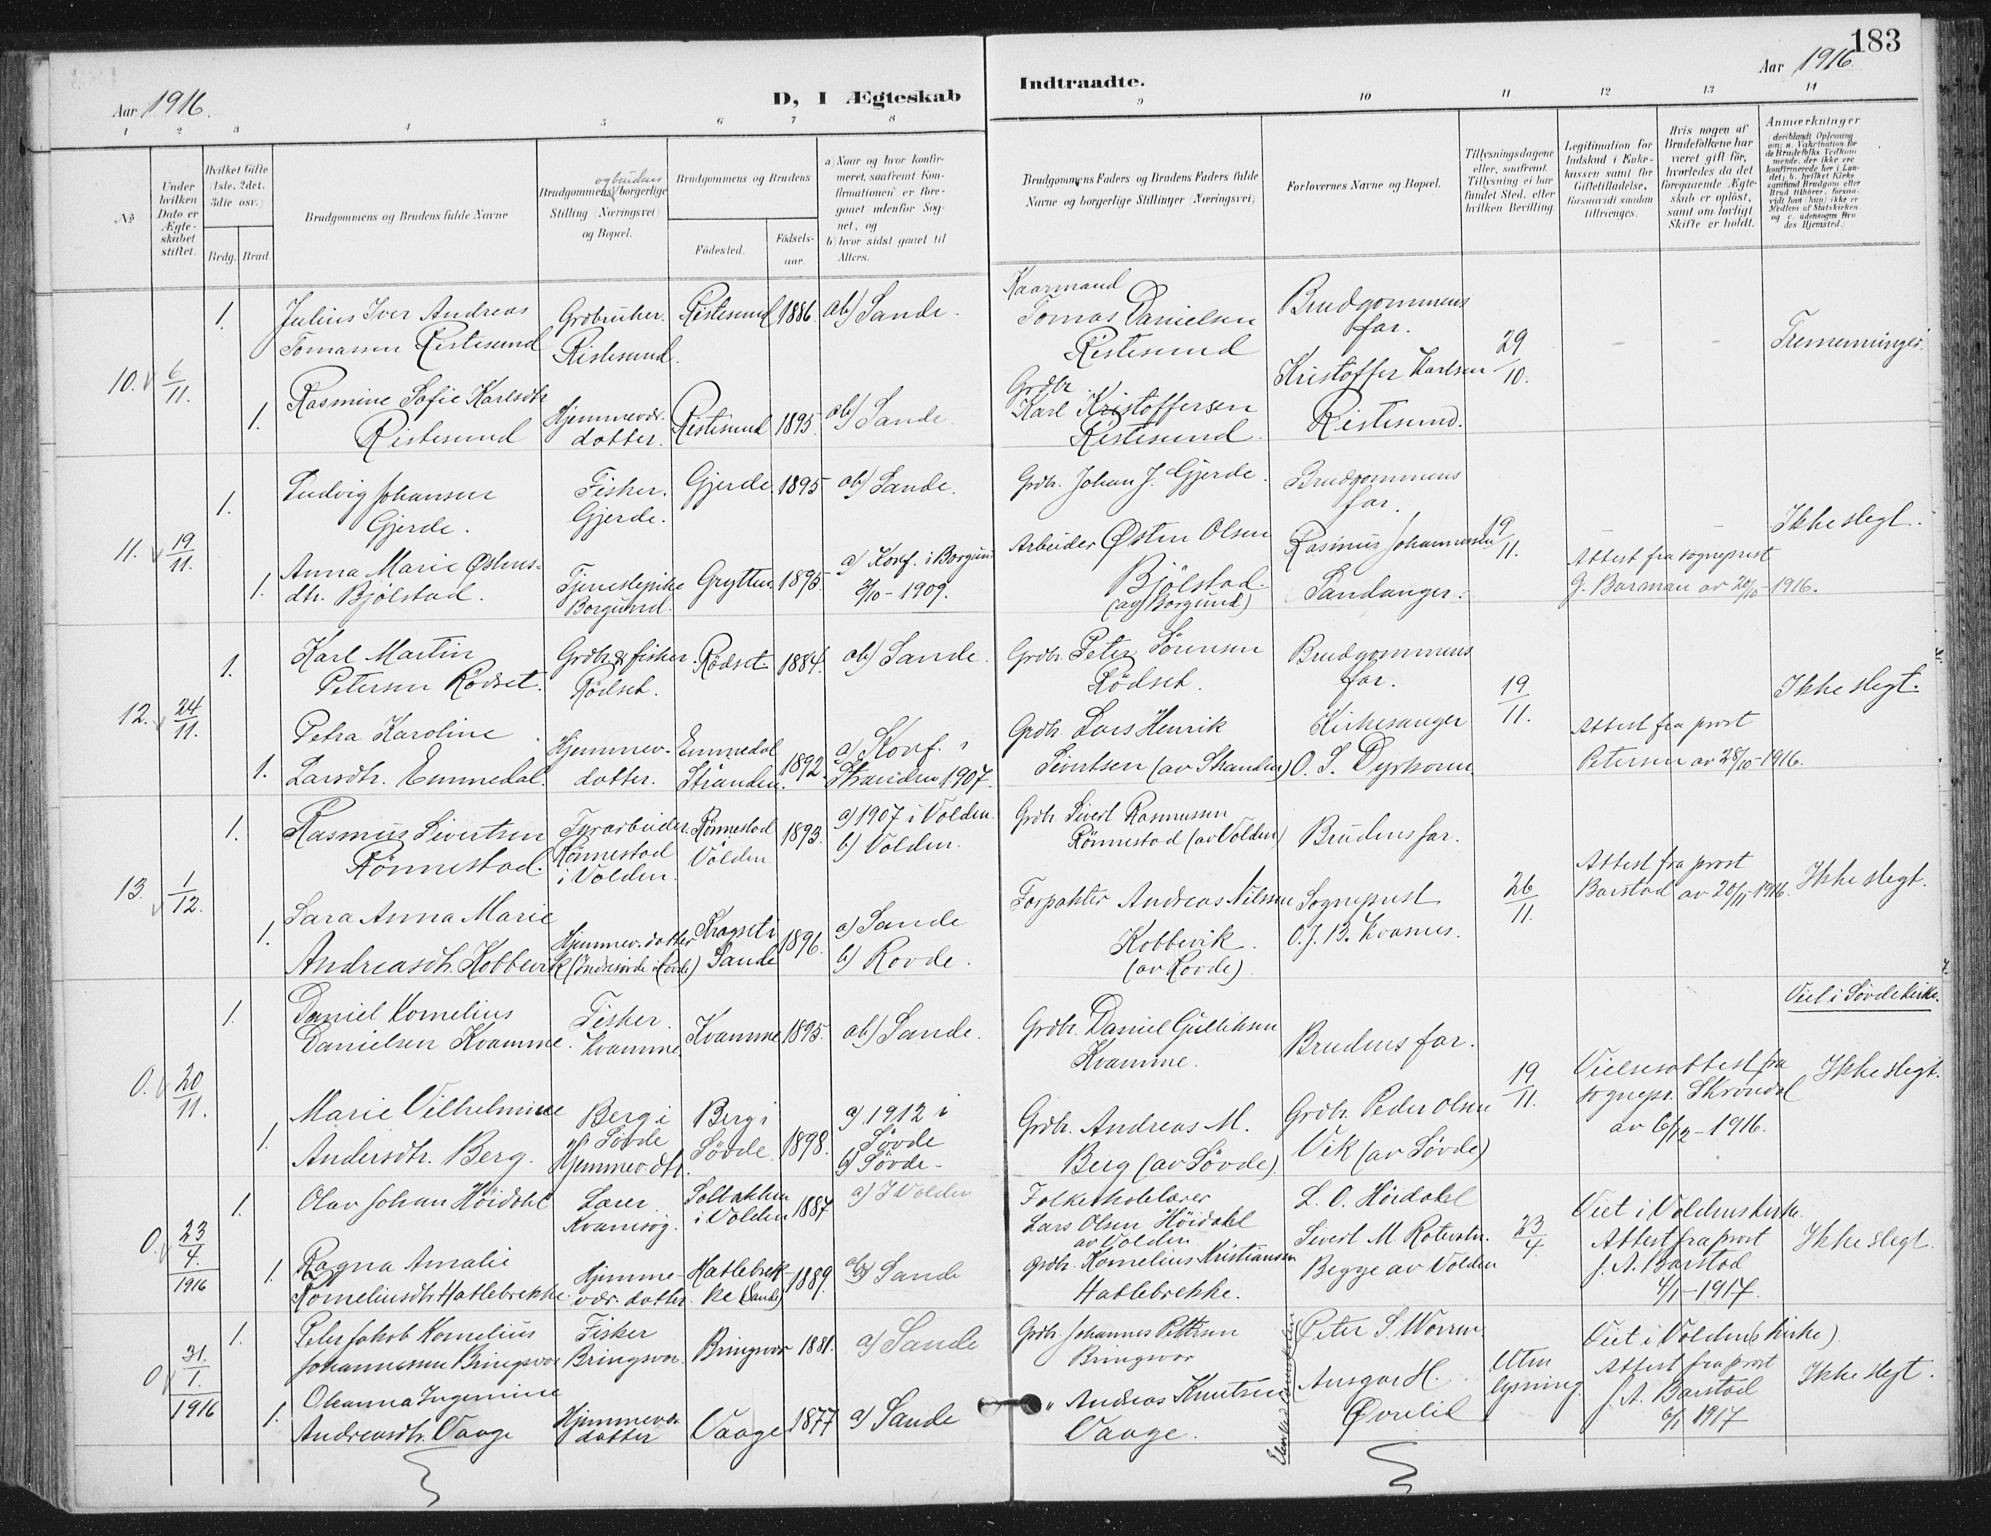 183
Aar 1916.
D, I Ægteskab
Indtraadte.
Aar 1916.
1 2 3 4 5 6 7 8 9 10 11 12 13 14
No
Under hvilken Dato er Ægteskabet stiftet.
Hvilket Gifte (1ste, 2det, 3die osv.)
Brdg. Brud.
Brudgommens og Brudens fulde Navne
Brudgommens og brudens borgerlige Stilling (Næringsvei) og Bopæl.
Brudgommens og Brudens
Fødested.
Fødselsaar.
a) Naar og hvor konfirmeret, saafremt Konfirmationen er foregaaet udenfor Sognet, og
b) hvor sidst gaaet til Alters.
Brudgommens Faders og Brudens Faders fulde Navne og borgerlige Stillinger (Næringsvei)
Forlovernes Navne og Bopæl.
Tillysningsdagene eller, saafremt Tillysning ei har fundet Sted, efter hvilken Bevilling
Legitimation for Indskud i Enkekassen samt for Giftetilladelse, forsaavidt saadan tiltrænges.
Hvis nogen af Brudefolkene har været gift før, hvorledes da det foregaaende Ægteskab er opløst, samt om lovligt Skifte er holdt.
Anmærkninger
10. 6/11.
1. Julius Iver Andreas
Tomassen Ristesund
Grdbruker.
Ristesund.
Ristesund 1886. ab) Sande.
Kaarmand
Tomas Danielsen
Ristesund
Brudgommens
far.
29/10.
Tremenninger.
1. Rasmine Sofie Karlsdtr
Ristesund
Hjemmevær.
datter.
Ristesund 1895. ab) Sande.
Grdbr.
Karl Kristoffersen
Ristesund.
Kristoffer Karlsen
Ristesund.
11. 19/11.
1. Ludvig Johansen
Gjerde.
Fisker.
Gjerde.
Gjerde. 1895 ab) Sande.
Grdbr. Johan J. Gjerde.
Brudgommens
far.
19/11.
Ikke slegt.
1. Anna Marie Østens-
dtr. Bjølstad.
Tjenestepike
Borgund.
Grytten 1895. a) Konf. i Borgund
3/10-1909.
Arbeider Østen Olsen
Bjølstad.
(av Borgund)
Rasmus Johannessen
Sandanger.
Attest fra sogneprest
G. Barman av 20/10-1916.
12. 24/11.
1. Karl Martin
Petersen Rødset.
Grdbr. & fisker
Rødset.
Rødset 1884. ab) Sande.
Grdbr. Peter Sørensen
Rødset.
Brudgommens
far.
19/11.
Ikke slegt.
1. Petra Karoline
Larsdtr. Emmedal.
Hjemmev.
datter.
Emmedal
Stranden. 1892. a) Konf. i
Stranden 1907.
Grdbr. Lars Henrik
Sivertsen (av Stranden)
Kirkesanger
O. S. Dyrkorn.
Attest fra prost
Petersen av 28/10-1916.
13. 1/12.
1. Rasmus Sivertsen
Rønnestad.
Fyrarbeider.
Rønnestad
i Volden.
Rønnestad
Volden 1893. a) 1907 i Volden.
b) Volden.
Grdbr. Sivert Rasmussen
Rønnestad (av Volden)
Brudens far.
26/11.
Attest fra prost
Barstad av 20/11 1916.
Ikke slegt.
1. Sara Anna Marie
Andreasdtr. Kobbevik
Hjemmev. datter
Kragset i
Sande 1896. a) Sande
b) Rovde.
Forpakter Andreas Nilssen
Kobbevik.
(av Rovde).
Sogneprest
O. J. B. Kvasnes.
Viet i Søvde kirke.
0. 20/11.
1. Daniel Kornelius
Danielsen Kvamme.
Fisker.
Kvamme.
Kvamme 1895. ab) Sande.
Grdbr. Daniel Gulliksen
Kvamme.
Brudens far.
19/11.
Vielsesattest fra
sognepr. Skrondal
av 6/12-1916.
Ikke slegt.
1. Marie Vilhelmine
Andersdtr. Berg.
Berg i
Søvde
Hjemmev. dtr.
Berg i
Søvde 1898. a) 1912 i
Søvde
b) Søvde.
Grdbr. Andreas M.
Berg (av Søvde)
Grdbr. Peder Olsen
Vik (av Søvde)
0. 23/4. 1916
1. Olav Johan Høidahl
Lærer
Kvamsøy.
Solbakken
i Volden 1887 a) i Volden
Folkeskolelærer
Lars Olsen Høidahl
av Volden
L. O. Høidahl
23/4
Viet i Voldens kirke.
Attest fra prost
J. A. Barstad
4/1-1917.
Ikke slegt.
1. Ragna Amalie
Korneliusdtr Hatlebrekke
Hjemme-
vær. datter.
Hatlebrek-
ke (Sande) 1889. ab) Sande
Grdbr. Kornelius Kristiansen
Hatlebrekke.
Sivert M Rotevatn.
Begge av Volden
0 31/1. 1916
1. Peter Jakob Kornelius
Johannessen Bringsvor
Fisker
Bringsvor.
Bringsvor 1881. a) Sande
Grdbr. Johannes Pettersen
Bringsvor
Peter S. Worren.
Uten
lysning.
Viet i Volden (kirke).
Attest fra prost
J. A. Barstad
6/1 1917
Ikke slegt.
1. Oleanna Ingemine
Andreasdtr. Vaage
Hjemmevær
datter
Vaage 1877 a) Sande
" Andreas Knutsen
Vaage.
Ansgar H.
Øvrelid